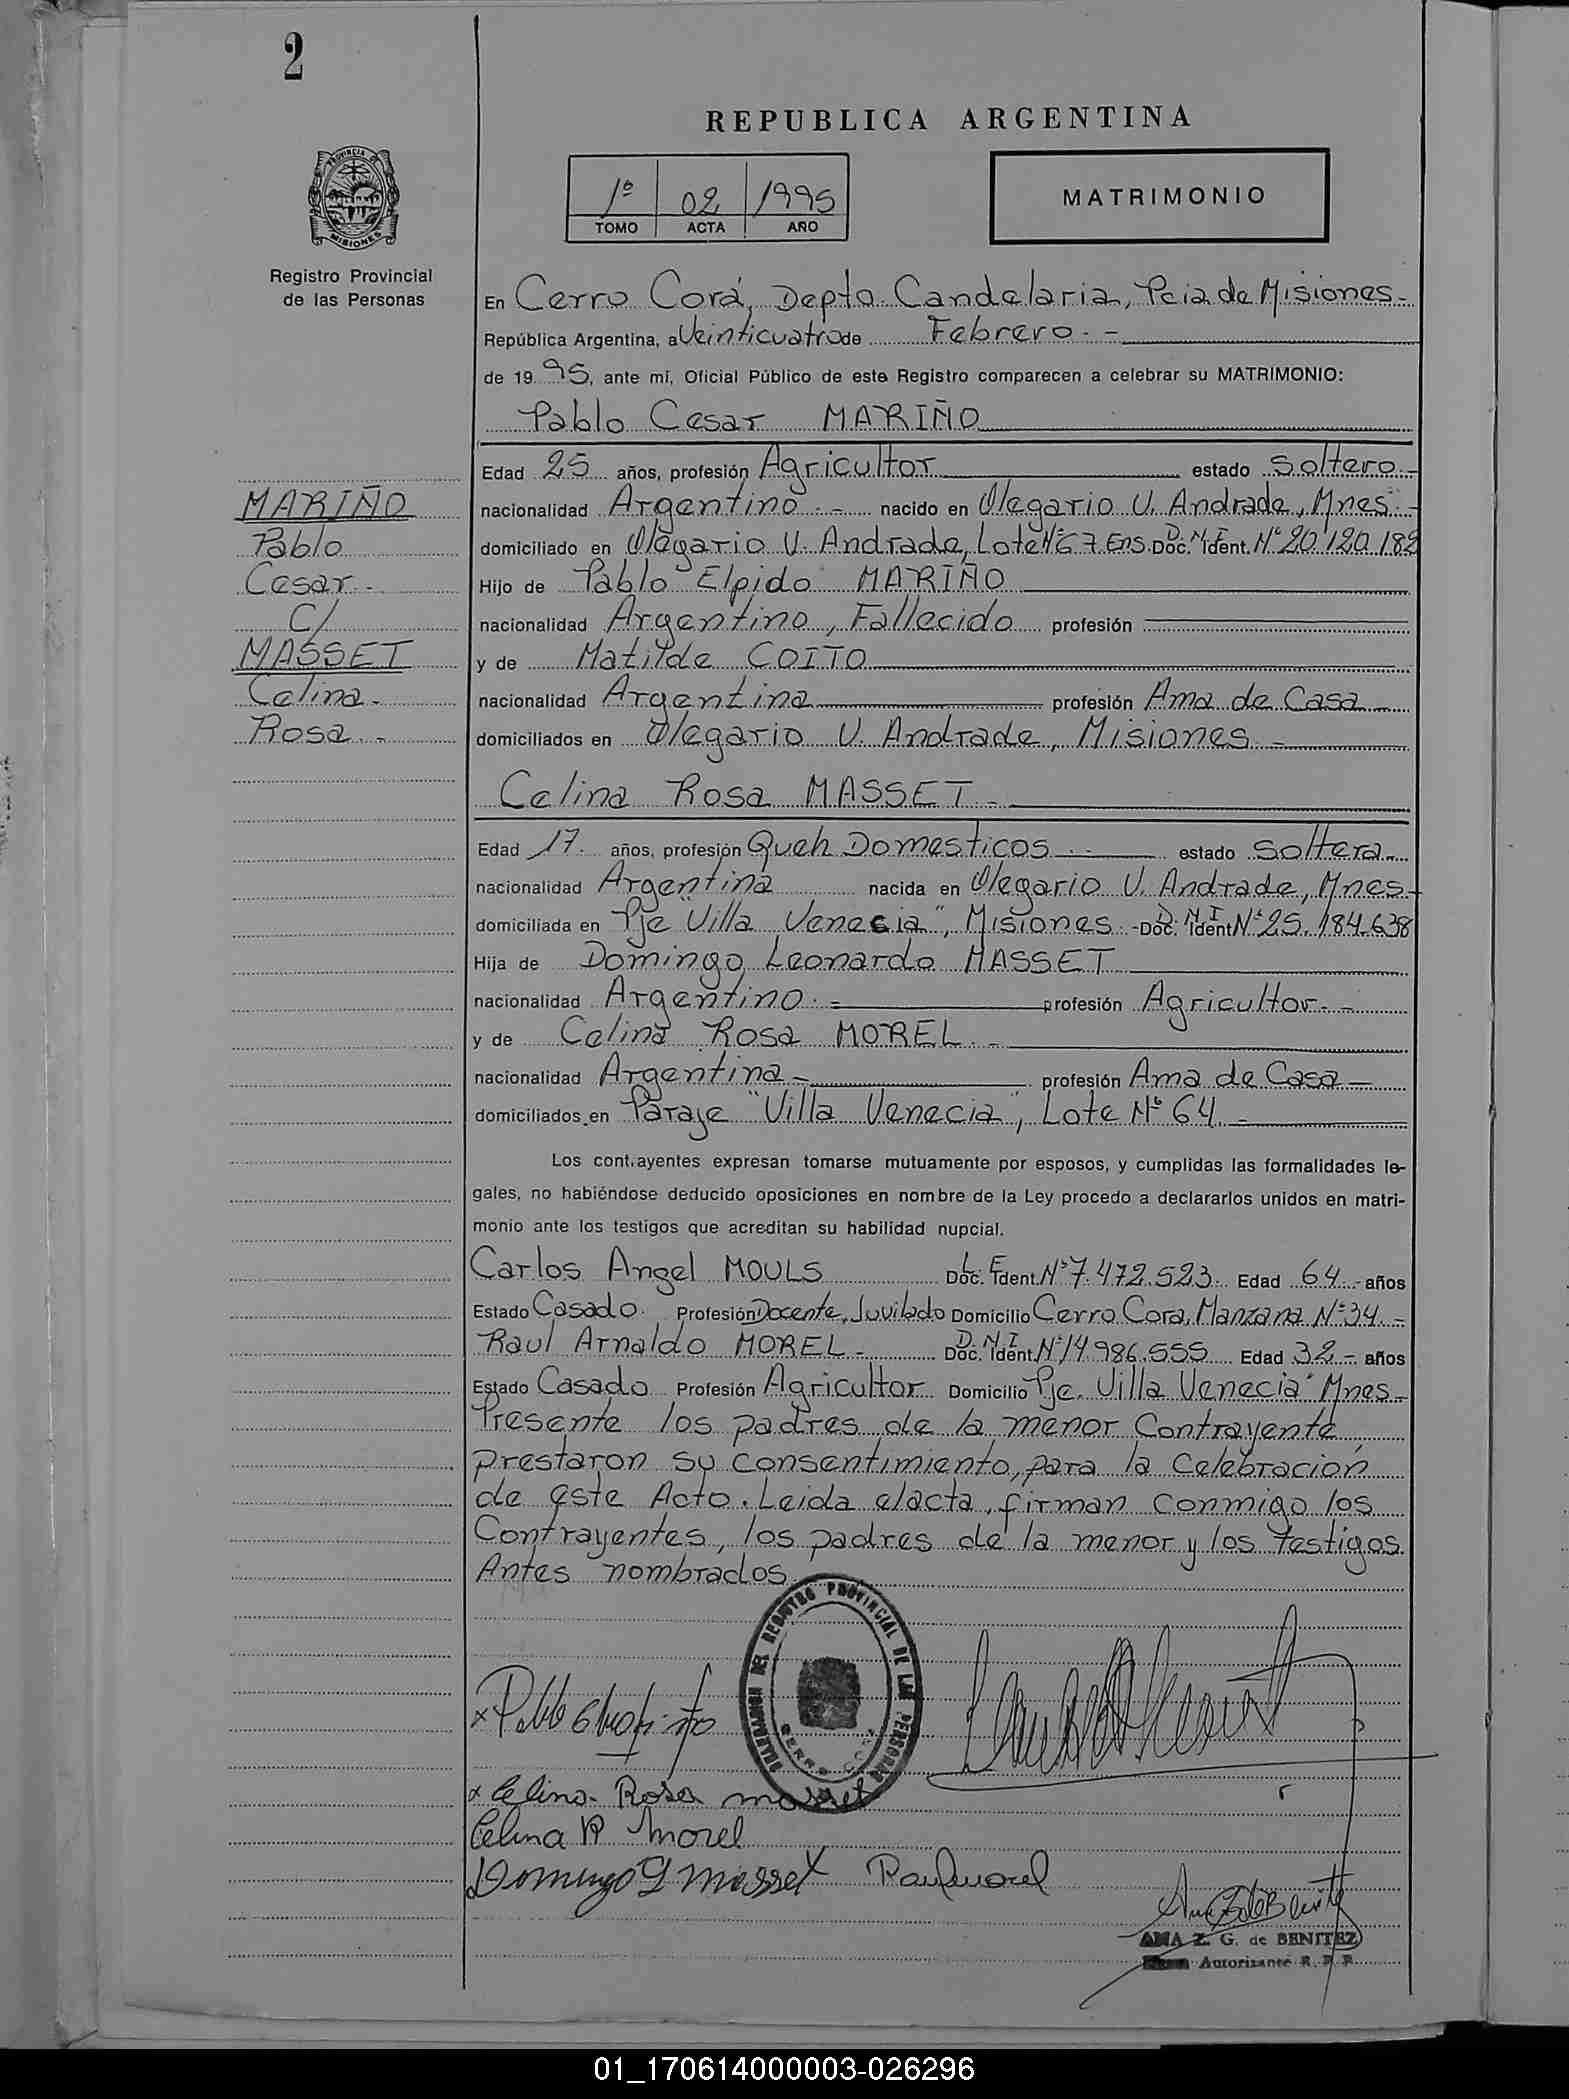 2
REPUBLICA ARGENTINA
PROVINCIA DE
MISIONES
Registro Provincial
de las Personas
1º 02 1995
TOMO ACTA AÑO
MATRIMONIO
En Cerro Corá, Depto. Candelaria, Pcia de Misiones-
República Argentina, a Veinticuatro de Febrero.-
de 1995, ante mí, Oficial Público de este Registro comparecen a celebrar su MATRIMONIO:
Pablo Cesar MARIÑO
Edad 25 años, profesión Agricultor estado Soltero.-
nacionalidad Argentino.- nacido en Olegario V. Andrade, Mnes.-
domiciliado en Olegario V. Andrade, Lote Nº 67. Ens. D.N.I. Doc. Ident. Nº 20.120.182
Hijo de Pablo Elpido MARIÑO
nacionalidad Argentino, Fallecido profesión
y de Matilde COITO
nacionalidad Argentina profesión Ama de Casa.-
domiciliados en Olegario V. Andrade, Misiones.-
MARIÑO
Pablo
Cesar.-
C/
MASSET
Celina.-
Rosa.-
Celina Rosa MASSET.-
Edad 17. años, profesión Queh Domesticos.- estado Soltera.-
nacionalidad Argentina nacida en Olegario V. Andrade, Mnes.-
domiciliada en Pje "Villa Venecia", Misiones.- D.N.I. Doc. Ident Nº 25.184.638
Hija de Domingo Leonardo MASSET
nacionalidad Argentino.- profesión Agricultor.-
y de Celina Rosa MOREL.-
nacionalidad Argentina.- profesión Ama de Casa-
domiciliados en Paraje "Villa Venecia", Lote Nº 64.-
Los contrayentes expresan tomarse mutuamente por esposos, y cumplidas las formalidades le-
gales, no habiéndose deducido oposiciones en nombre de la Ley procedo a declararlos unidos en matri-
monio ante los testigos que acreditan su habilidad nupcial.
Carlos Angel MOULS L.E. Doc. Ident. Nº 7.472.523. Edad 64.- años
Estado Casado. Profesión Docente, Juvilado Domicilio Cerro Cora, Manzana Nº 34.-
Raul Arnaldo MOREL.- D.N.I. Doc. Ident. Nº 14.986.555 Edad 32- años
Estado Casado Profesión Agricultor Domicilio Pje. Villa Venecia" Mnes-
Presente los padres de la menor Contrayente,
prestaron su consentimiento, para la Celebración
de este Acto. Leida el acta, firman conmigo los
Contrayentes, los padres de la menor y los testigos
Antes nombrados.
DELEGACION DEL REGISTRO PROVINCIAL DE LAS PERSONAS
CERRO CORA
x Celina Rosa Masset
Celina R Morel
Domingo L Masset Raul Morel
ANA Z. G. de BENITEZ
Autorizante R. P. P.
01_170614000003-026296